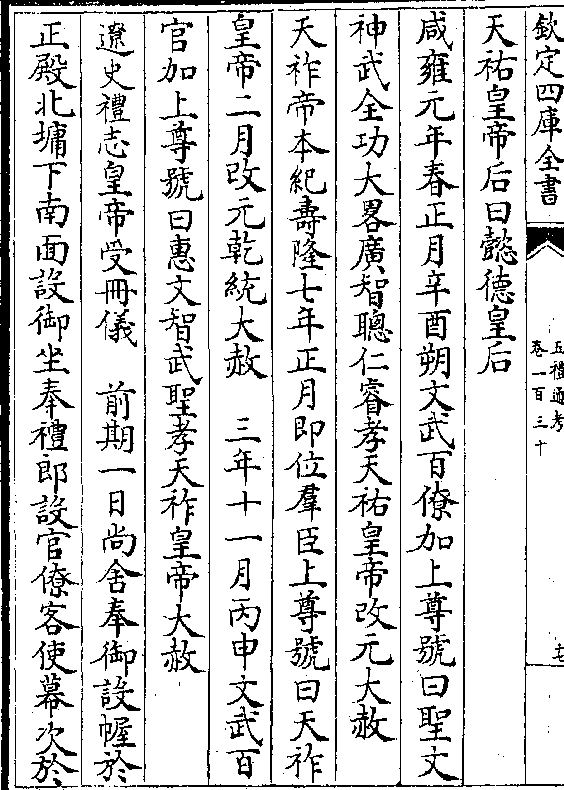 欽定四庫全書
五禮通考
卷一百三十
十七
天祐皇帝后曰懿德皇后
咸雍元年春正月辛酉朔文武百僚加上尊號曰聖文
神武全功大畧廣智聰仁睿孝天祐皇帝改元大赦
天祚帝本紀壽隆七年正月即位羣臣上尊號曰天祚
皇帝二月改元乾統大赦　三年十一月丙申文武百
官加上尊號曰惠文智武聖孝天祚皇帝大赦
遼史禮志皇帝受冊儀　前期一日尚舍奉御設幄於
正殿北墉下南面設御坐奉禮郎設官僚客使幕次於